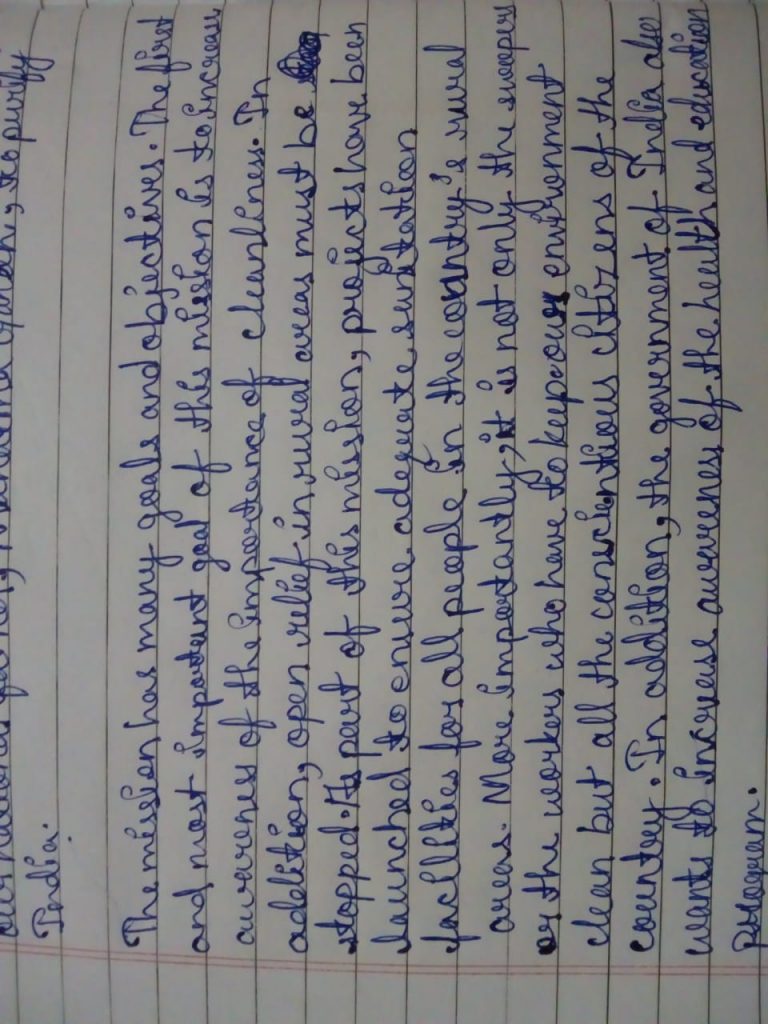 to purify
India.
The mission has many goals and objectives. The first
and most important goal of this mission is to increase
awareness of the importance of cleanliness. In
addition, open relief in rural areas must be
stopped. As part of this mission, projects have been
launched to ensure adequate sanitation
facilities for all people in the country's rural
areas. More importantly, it is not only the sweeper
or the workers who have to keep our environment
clean but all the conscientious citizens of the
country. In addition, the government of India also
wants to increase awareness of the health and education
program.